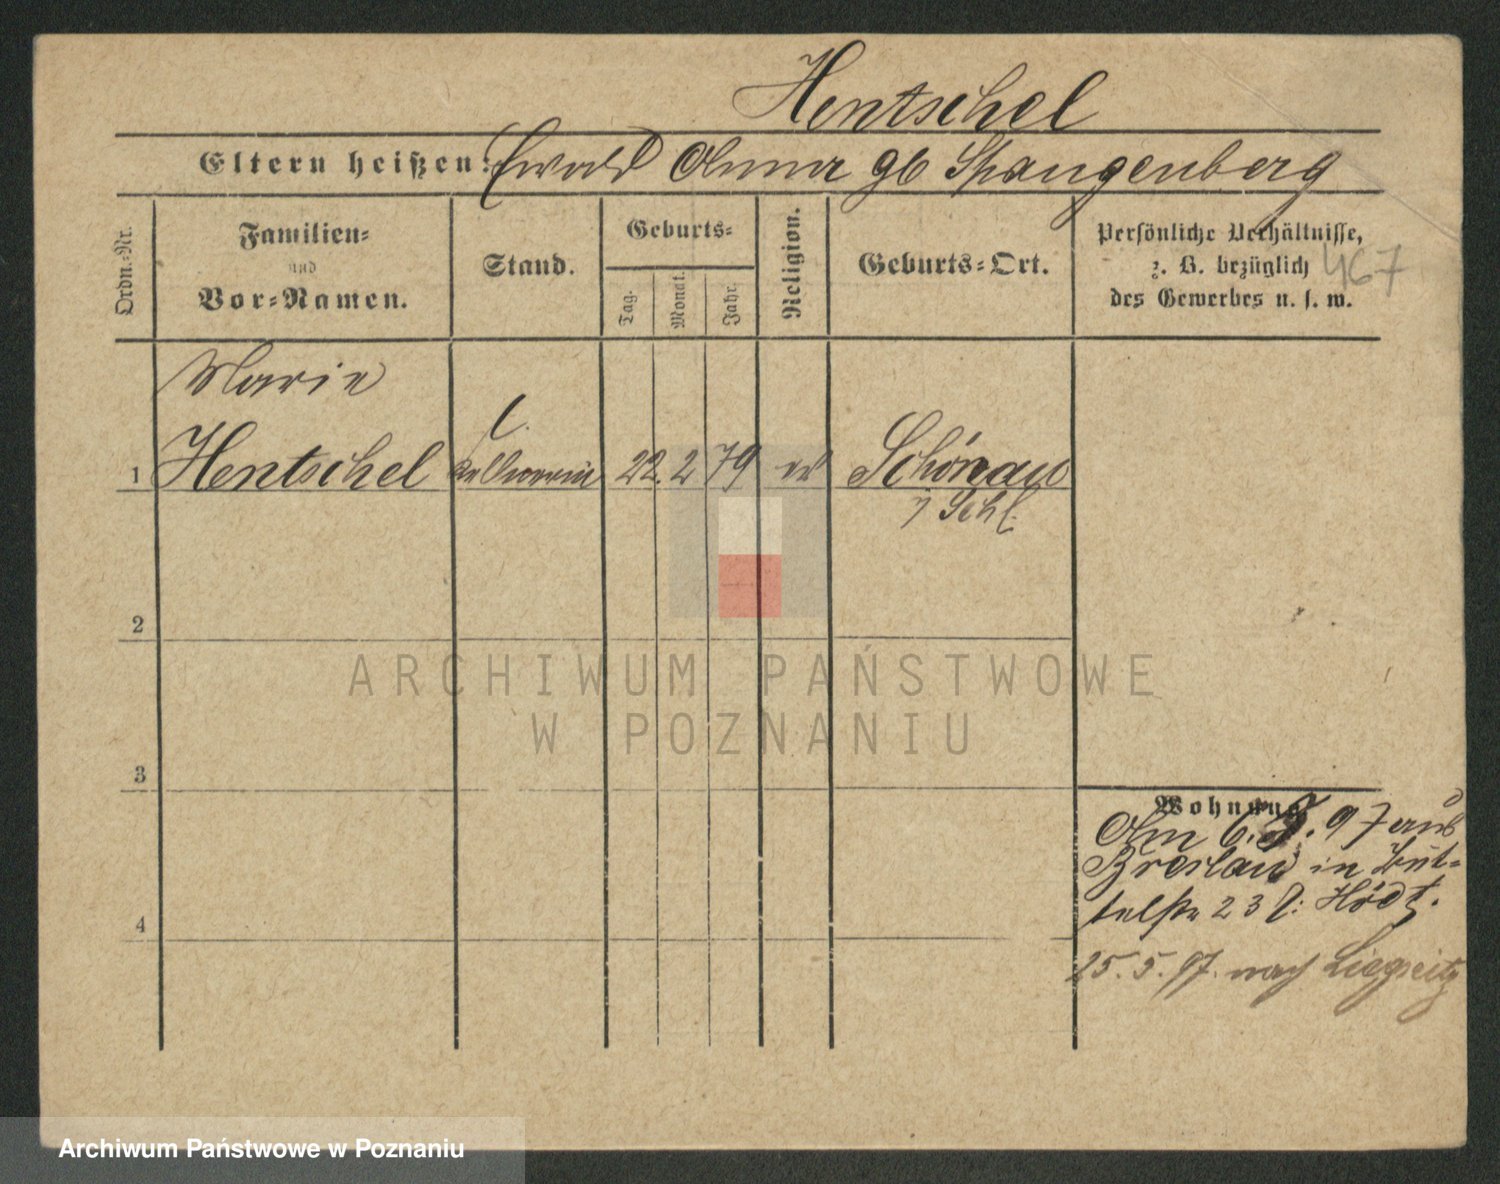 Hentschel
Eltern heißen: Ewald Anna gb Spangenberg
Ordn.-Nr.
Familien-
und
Vor-Namen.
Stand.
Geburts-
Tag.
Monat.
Jahr.
Religion.
Geburts-Ort.
Persönliche Verhältnisse,
z. B. bezüglich
des Gewerbes u. s. w.
467
Marie
1 Hentschel Kellnerin 22. 2 79 ev Schönau
Schl.
2
ARCHIWUM PAŃSTWOWE
W POZNANIU
3
Wohnung
Am 6. 97 aus
Breslau in
23 Hödt.
4
25. 5. 97. nach Liegnitz
Archiwum Państwowe w Poznaniu